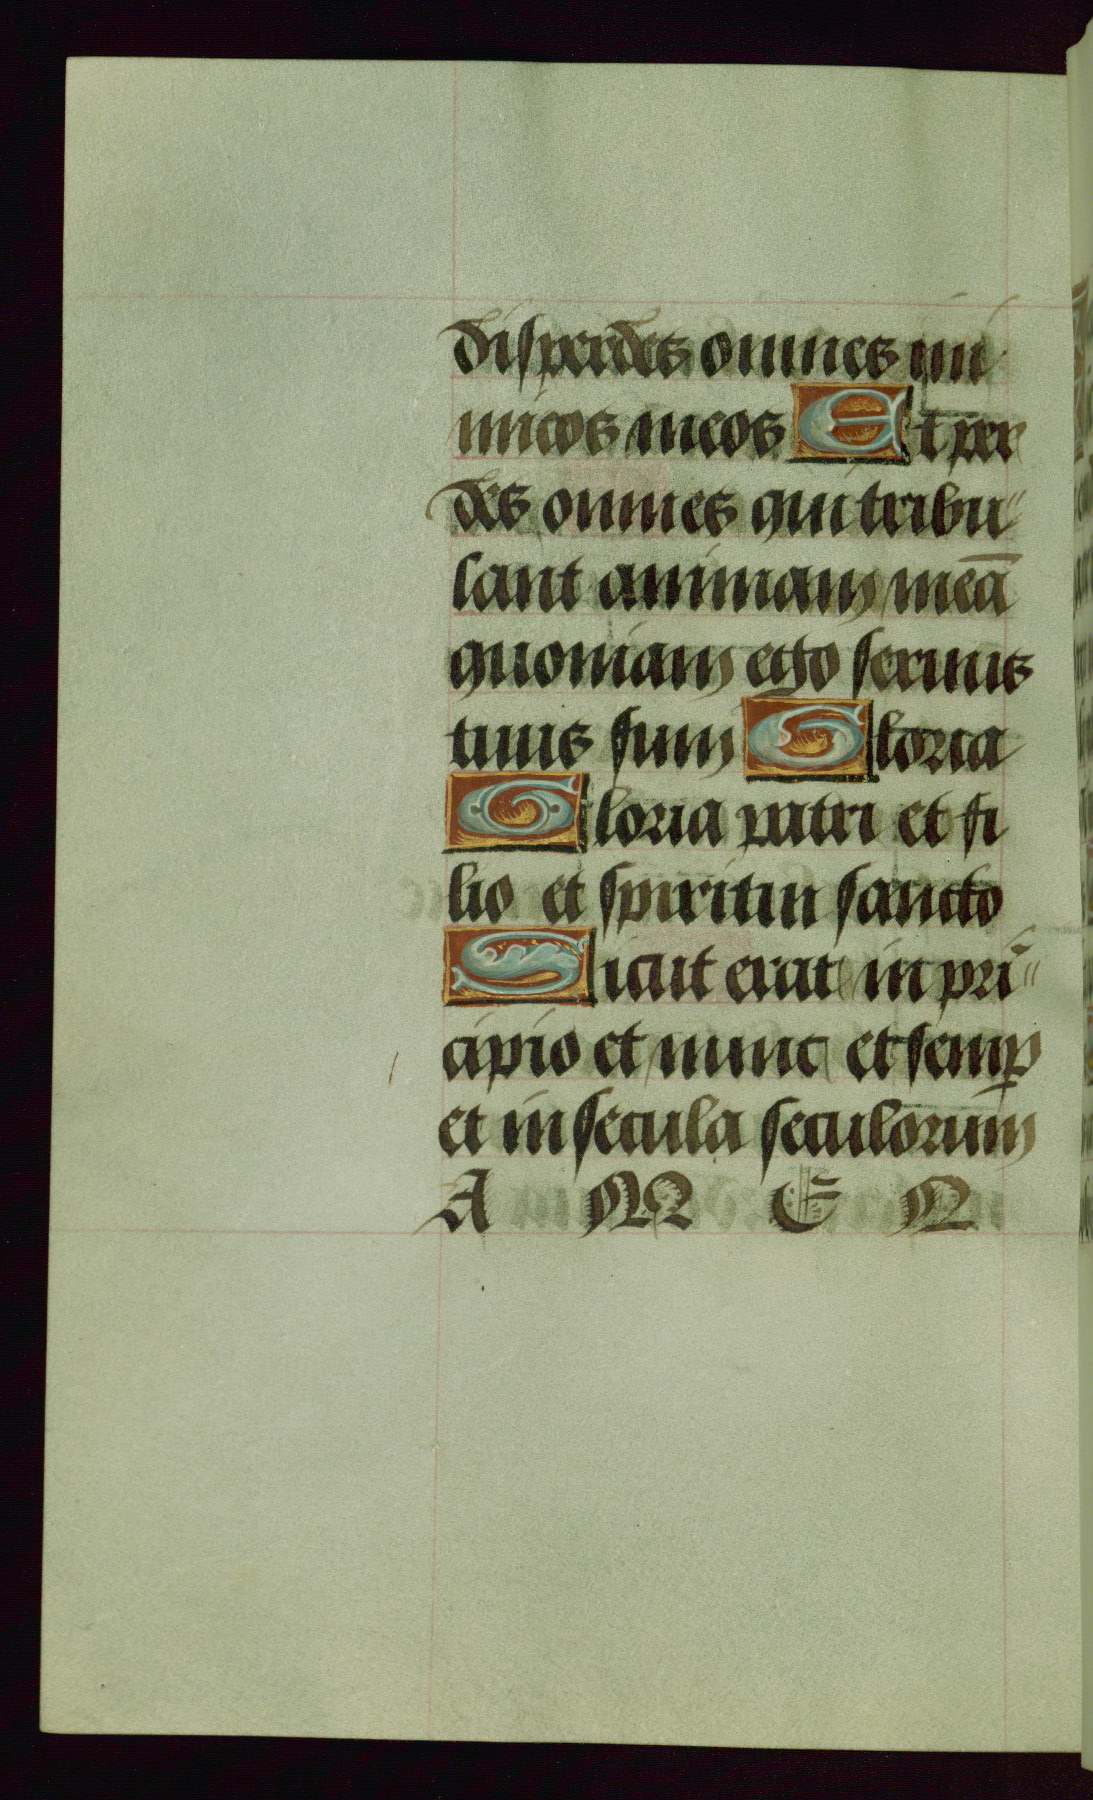 disperdes omnes ini
micos meos Et per
des omnes qui tribu"
lant animam meā
quoniam ego seruus
tuus sum Gloria
Gloria patri et fi
lio et spiritui sancto
Sicut erat in pri̅"
cipio et nunc et semp̱
et in secula seculorum
A M E N